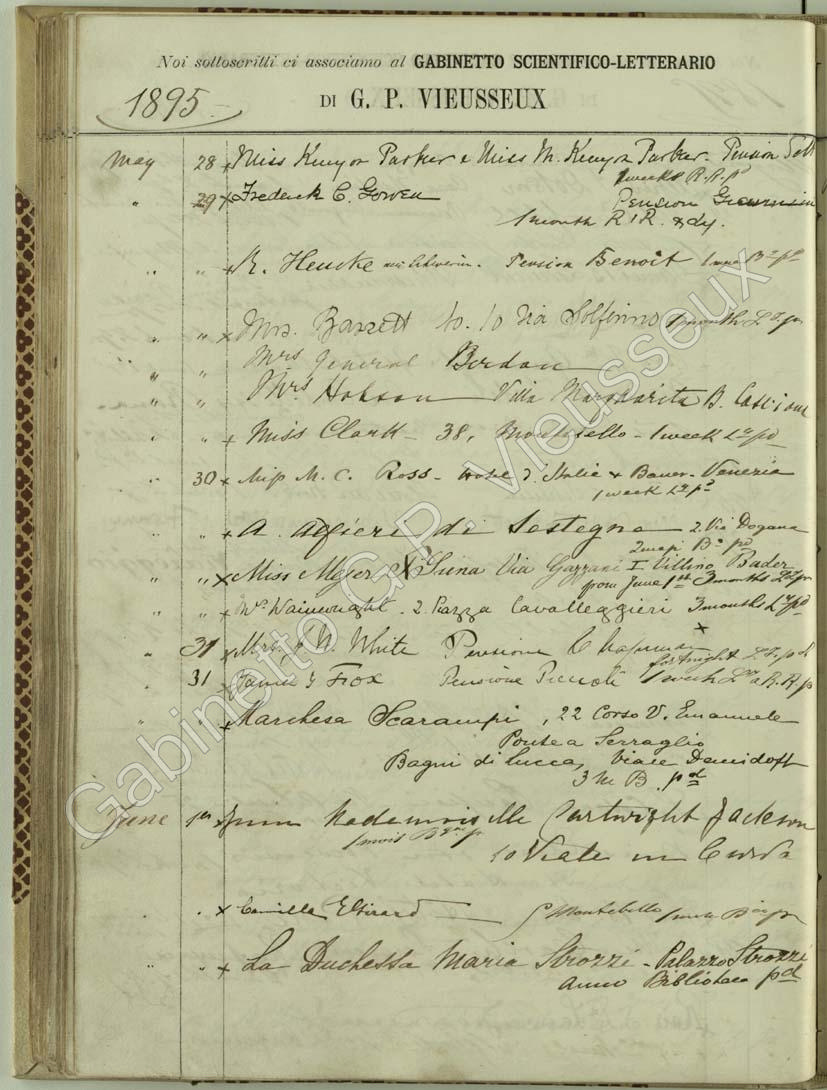 Noi sottoscritti ci associamo al GABINETTO SCIENTIFICO-LETTERARIO
1895
DI G. P. VIEUSSEUX
May 28 x Miss Kenyon Parker e Miss M. Kenyon Parker - Pension
" 29 x Frederick C. Gowen Pension
1 month R & R. & dy.
" " x Heucke Pension Benoit
" " x Mrs. Barrett 10. 10 Via Solferino 1 month
" " Mrs General Berdan
" " Mrs Hobson Villa Margherita B. Cascione
" " x Miss Clark - 38, Montebello - 1 week pd
30 x Miss M. C. Ross - Hotel d'Italie & Bauer - Venezia
1 week
" " x A. Alfieri di Sostegno 2. Via Dogana
2 mesi Bª pd
" " x Miss Meyer Via Villino Bader
from June 1st 3 months
" " x Wainwright. 2. Piazza Cavalleggieri 3 months pd
" 31 x Mrs J. W. White Pensione Chapman x
fortnight
31 x James Fox Pensione Piccioli 1 week
" " x Marchesa Scarampi, 22 Corso V. Emanuele
Ponte a Serraglio
Bagni di Lucca, Viale Demidoff
3 M B. pd
June 1st x Mademoiselle Cartwright Jackson
1 mois
10 Viale in Curva
x Camilla Montebello
" x La Duchessa Maria Strozzi - Palazzo Strozzi
anno Biblioteca pd
Gabinetto G.P. Vieusseux